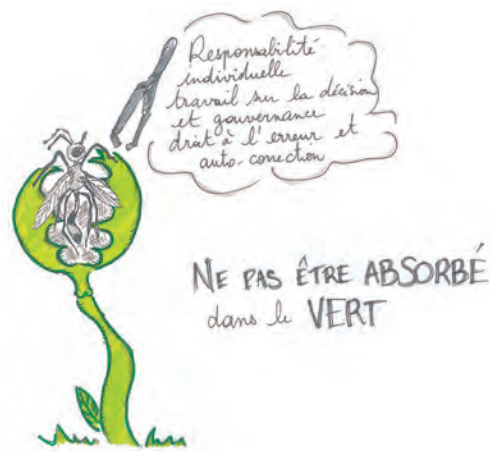 Responsabilité
individuelle
travail sur la décision
et gouvernance
droit à l'erreur et
auto-correction
NE PAS ÊTRE ABSORBÉ
dans le VERT